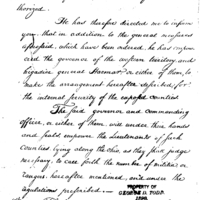 thorized.
He has therefore directed me to inform
you, that in addition to the general measures
aforesaid, which have been ordered, he has empow
ered the governor of the western territory and
brigadier general Harmar or either of them, to
make the arrangement hereafter described for
the internal security of the exposed counties
The said governor and commanding
officer, or either of them will under their hands
and seals empower the lieutenants of such
counties lying along the ohio, as they shall judge
necessary, to call forth the number of militia or
rangers hereafter mentioned, and under the
regulations prescribed
PROPERTY OF
GEORGE D. TODD.